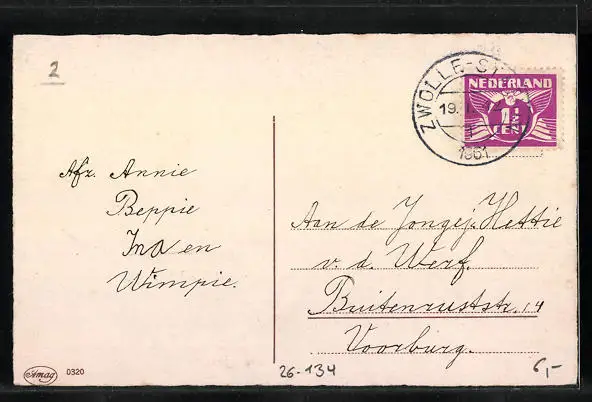 2
ZWOLLE-ST
19.
1931
NEDERLAND
1½
CENT
Afz. Annie
Beppie
Ina en
Wimpie.
Aan de Jongej. Hettie
v. d. Werf.
Buitenruststr. 14
Voorburg.
Amag 0320
26-134
6,-